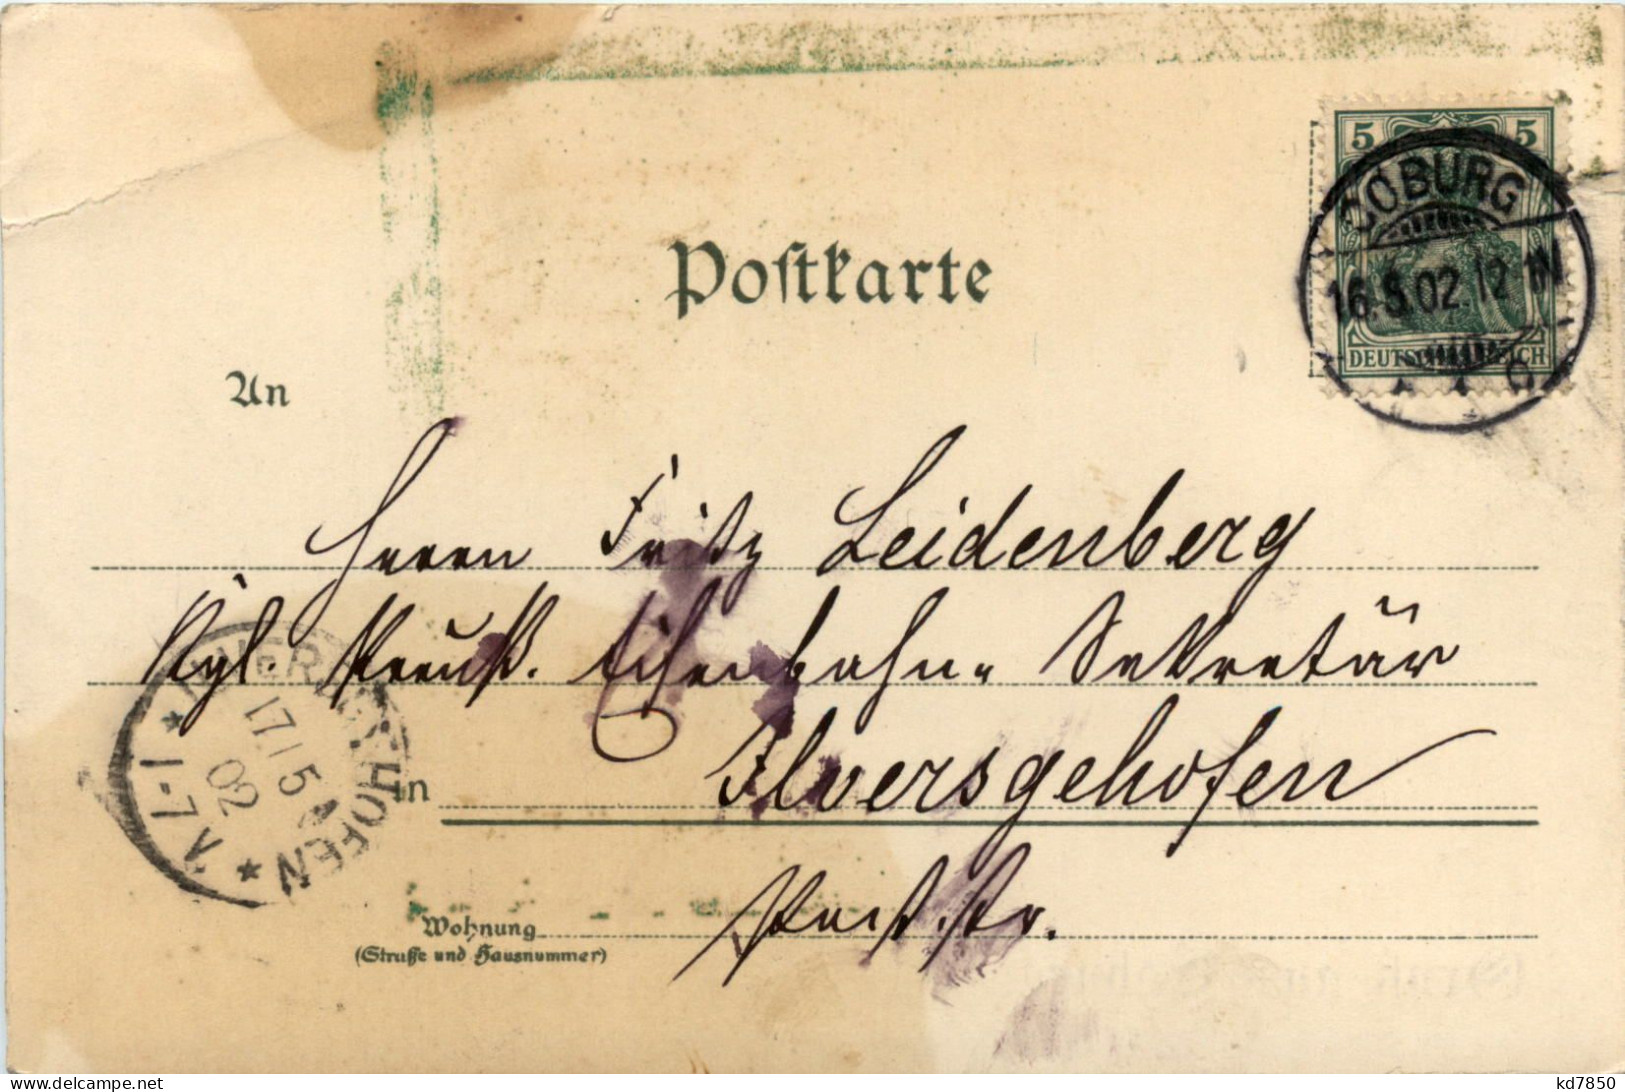 Postkarte
5 5
COBURG
16.5.02. 12-1N
DEUTSCHES REICH
An
Herrn Fritz Leidenberg
Kgl. Preuß. Eisenbahn- Sekretär
ILVERSGEHOFEN
17/5
02
7-V
in Ilversgehofen
Wohnung
(Straße und Hausnummer)
www.delcampe.net
kd7850